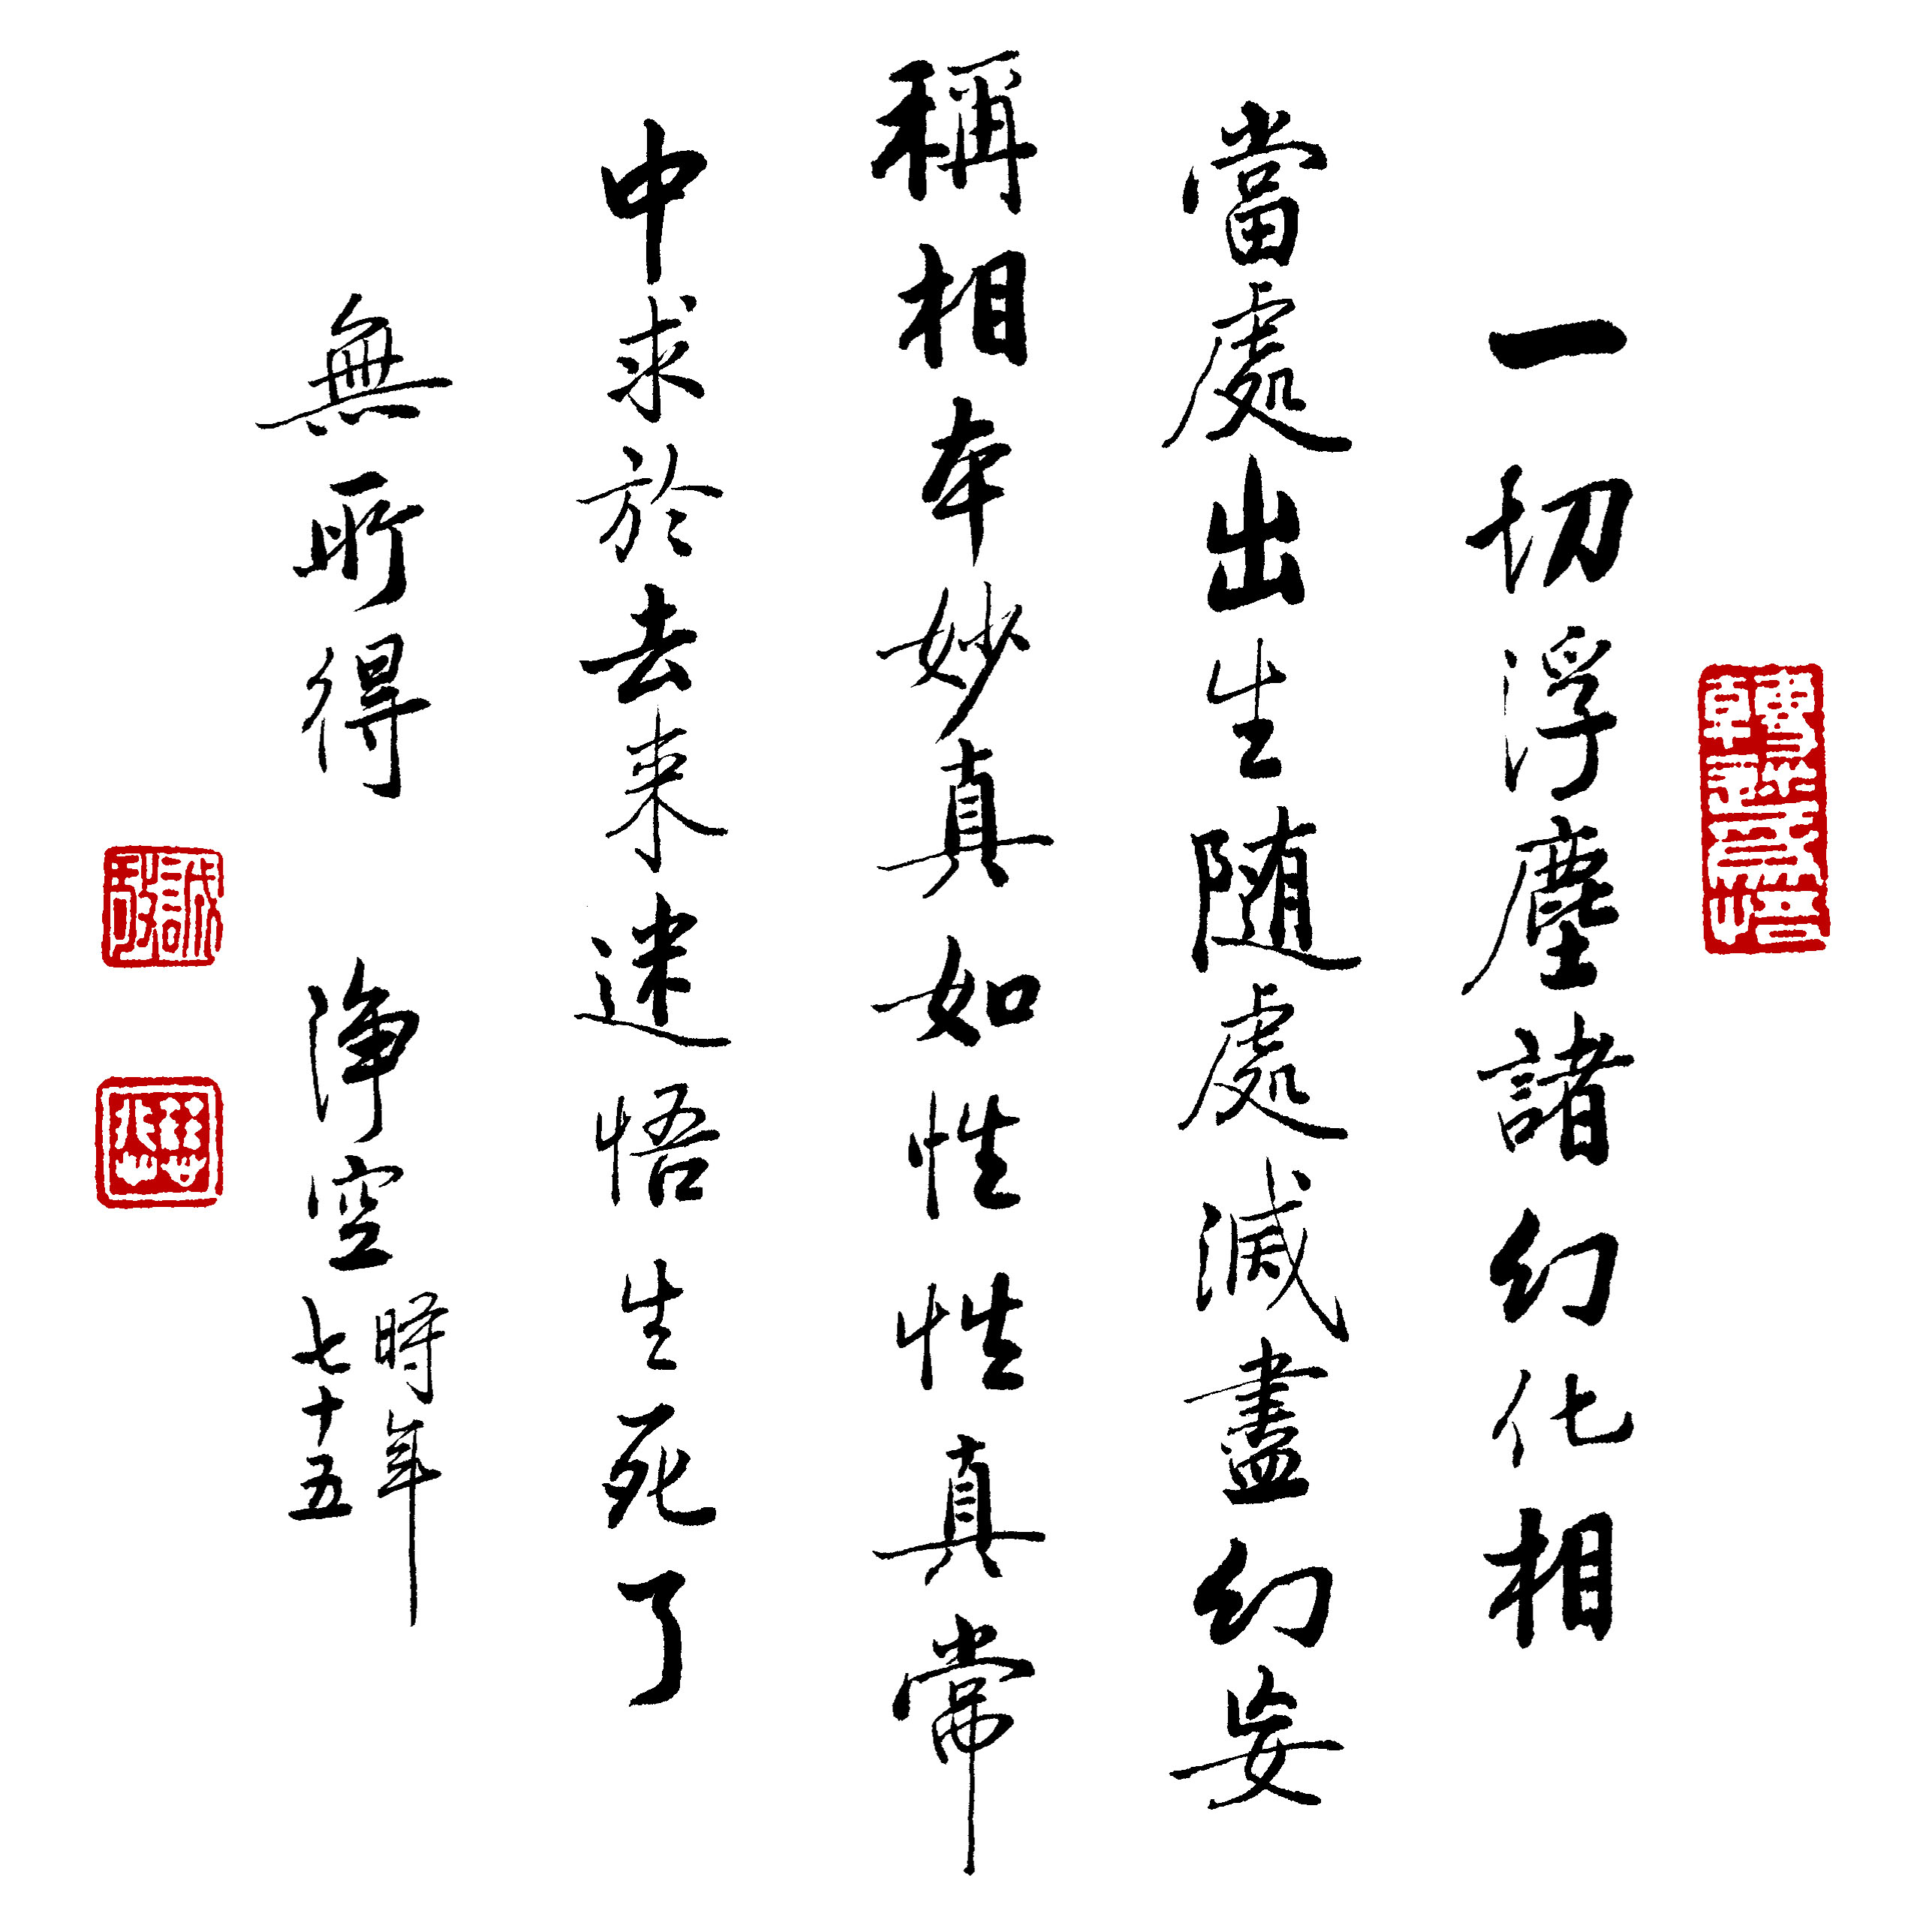 一切浮塵諸幻化相
當處出生随處滅盡幻妄
稱相本妙真如性性真常
中求於去来迷悟生死了
無所得
淨空
時年
七十五